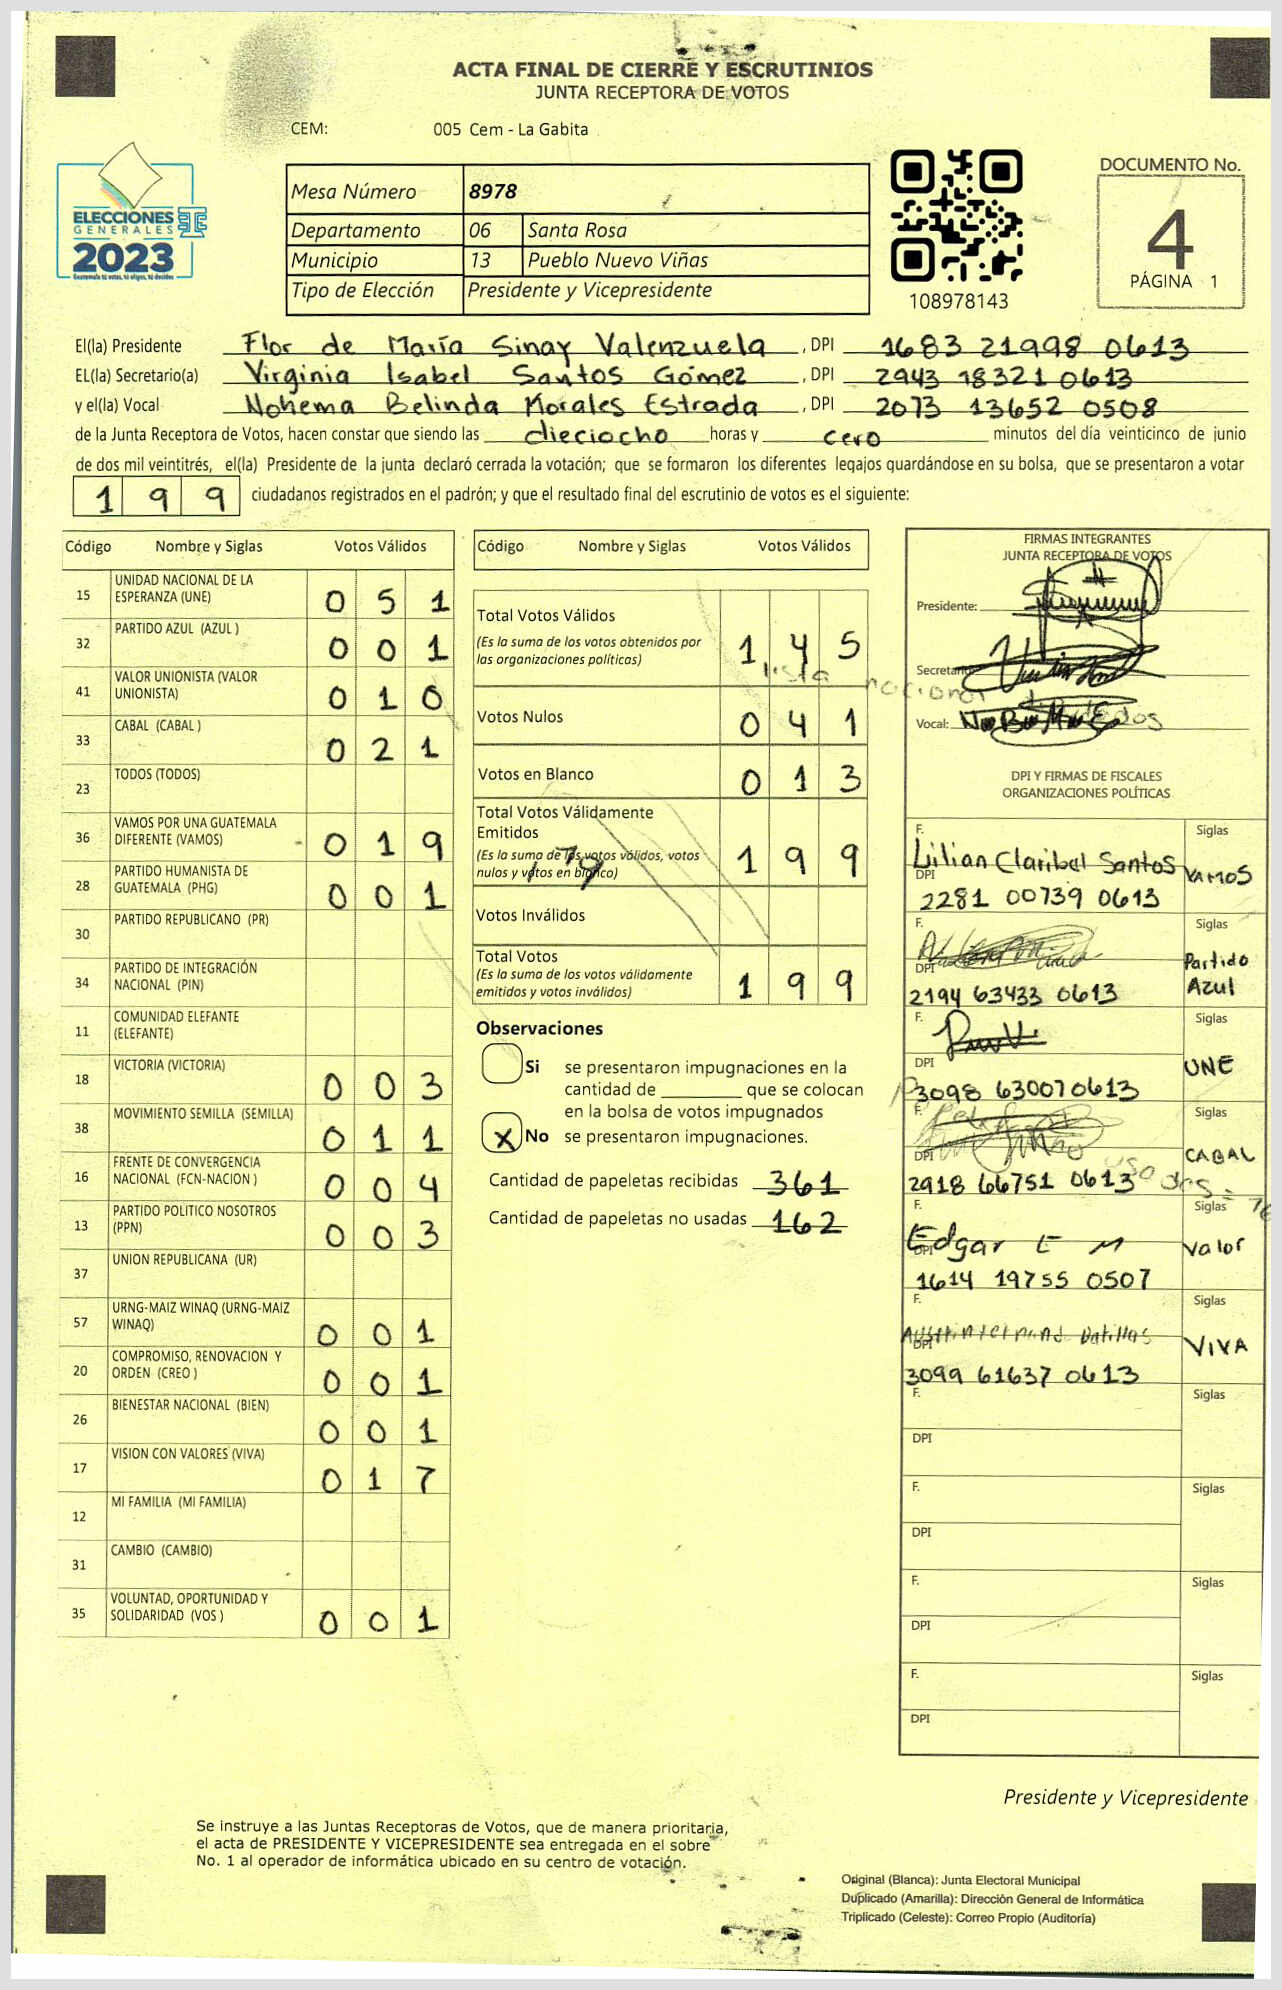 ACTA FINAL DE CIERRE Y ESCRUTINIOS
JUNTA RECEPTORA DE VOTOS
CEM: 005 Cem - La Gabita
ELECCIONES
GENERALES
2023
Guatemala tú votas, tú eliges, tú decides
Mesa Número 8978
Departamento 06 Santa Rosa
Municipio 13 Pueblo Nuevo Viñas
Tipo de Elección Presidente y Vicepresidente
108978143
DOCUMENTO No.
4
PÁGINA 1
El(la) Presidente Flor de María Sinay Valenzuela , DPI 1683 21998 0613
EL(la) Secretario(a) Virginia Isabel Santos Gómez , DPI 2943 18321 0613
y el(la) Vocal Nohema Belinda Morales Estrada , DPI 2073 13652 0508
de la Junta Receptora de Votos, hacen constar que siendo las dieciocho horas y cero minutos del día veinticinco de junio
de dos mil veintitrés, el(la) Presidente de la junta declaró cerrada la votación; que se formaron los diferentes legajos guardándose en su bolsa, que se presentaron a votar
1 9 9 ciudadanos registrados en el padrón; y que el resultado final del escrutinio de votos es el siguiente:
Código Nombre y Siglas Votos Válidos
15 UNIDAD NACIONAL DE LA ESPERANZA (UNE) 0 5 1
32 PARTIDO AZUL (AZUL ) 0 0 1
41 VALOR UNIONISTA (VALOR UNIONISTA) 0 1 0
33 CABAL (CABAL ) 0 2 1
23 TODOS (TODOS)
36 VAMOS POR UNA GUATEMALA DIFERENTE (VAMOS) 0 1 9
28 PARTIDO HUMANISTA DE GUATEMALA (PHG) 0 0 1
30 PARTIDO REPUBLICANO (PR)
34 PARTIDO DE INTEGRACIÓN NACIONAL (PIN)
11 COMUNIDAD ELEFANTE (ELEFANTE)
18 VICTORIA (VICTORIA) 0 0 3
38 MOVIMIENTO SEMILLA (SEMILLA) 0 1 1
16 FRENTE DE CONVERGENCIA NACIONAL (FCN-NACION ) 0 0 4
13 PARTIDO POLITICO NOSOTROS (PPN) 0 0 3
37 UNION REPUBLICANA (UR)
57 URNG-MAIZ WINAQ (URNG-MAIZ WINAQ) 0 0 1
20 COMPROMISO, RENOVACION Y ORDEN (CREO ) 0 0 1
26 BIENESTAR NACIONAL (BIEN) 0 0 1
17 VISION CON VALORES (VIVA) 0 1 7
12 MI FAMILIA (MI FAMILIA)
31 CAMBIO (CAMBIO)
35 VOLUNTAD, OPORTUNIDAD Y SOLIDARIDAD (VOS ) 0 0 1
Código Nombre y Siglas Votos Válidos
Total Votos Válidos
(Es la suma de los votos obtenidos por
las organizaciones políticas) 1 4 5
lista nacional
Votos Nulos 0 4 1
Votos en Blanco 0 1 3
Total Votos Válidamente
Emitidos
(Es la suma de los votos válidos, votos
nulos y votos en blanco) 1 9 9
Votos Inválidos
Total Votos
(Es la suma de los votos válidamente
emitidos y votos inválidos) 1 9 9
Observaciones
Si se presentaron impugnaciones en la
cantidad de ________ que se colocan
en la bolsa de votos impugnados
X No se presentaron impugnaciones.
Cantidad de papeletas recibidas 361
Cantidad de papeletas no usadas 162
FIRMAS INTEGRANTES
JUNTA RECEPTORA DE VOTOS
Presidente:
Secretario:
Vocal:
DPI Y FIRMAS DE FISCALES
ORGANIZACIONES POLÍTICAS
F. Lilian Claribel Santos Siglas VAMOS
DPI 2281 00739 0613
F. Siglas Partido Azul
DPI 2194 63433 0613
F. Siglas UNE
DPI 3098 63007 0613
F. Siglas CABAL
DPI 2918 66751 0613
F. Edgar E M Siglas Valor
DPI 1614 19755 0507
F. Siglas VIVA
DPI 3099 61637 0613
F. Siglas
DPI
F. Siglas
DPI
F. Siglas
DPI
F. Siglas
DPI
Presidente y Vicepresidente
Se instruye a las Juntas Receptoras de Votos, que de manera prioritaria,
el acta de PRESIDENTE Y VICEPRESIDENTE sea entregada en el sobre
No. 1 al operador de informática ubicado en su centro de votación.
Original (Blanca): Junta Electoral Municipal
Duplicado (Amarilla): Dirección General de Informática
Triplicado (Celeste): Correo Propio (Auditoría)